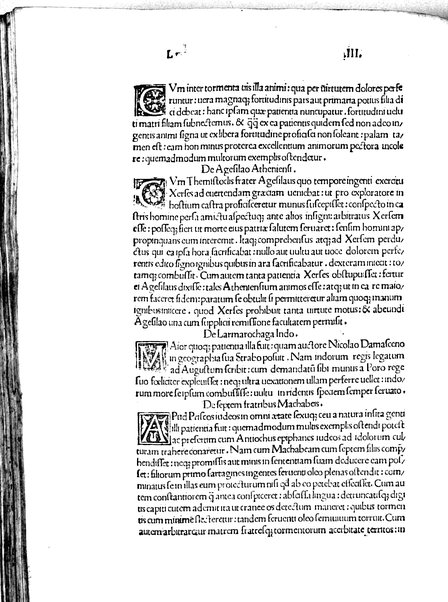 L III.
CVm inter tormenta uis illa animi: qua per uirtutem dolores perfe
runtur: uera magnaq; fortitudinis pars aut primaria potius filia di
ci debeat: hanc ipsam quæ patientia nuncupatur. fortitudini uelu
ti matri filiam subnectemus. & q̃q̃ ex ea patientis quidem sed non adeo in
gentis animi signa ut ex libera fortitudine proficisci non soleant: palam ta
men est: eam hon minus proterea excellentium animorum pectora incole
re: quemadmodum multorum exemplis ostendetur.
De Agesilao Atheniensi.
CVm Themistoclis frater Agesilaus quo tempore ingenti exercitu
Xerses ad euertendam græciam ueniebat: ut pro exploratore in
hostium castra proficisceretur munus suscepisset: conspecto in ca
stris homine persa amictu aspectuq; ante alios insigni: arbitratus Xersem
esse: posseq; fieri ut morte eius patriæ salutem seruaret: sensim homini ap/
propinquans cum interemit. Itaq; comprehensus atq; ad Xersem perdu/
ctus qui ea ipsa hora sacrificabat: nullo aut uultu aut uoce dolorem pefe/
rentis edito signo ignibus quibus in ara sacrificabatur. dexteram iniecit: to/
tamq; combussit. Cum autem tanta patientia Xerses obstupuisset: fertur
ei Agesilaus dixisse: talis Atheniensium animos esse: atq; ut in ea re maio/
rem faceret fidem: paratum se obtulit si permitteretur aliam quoq; manum
ignibus inicere. quod Xerses prohibuit tanta uirtute motus: & abeundi
Agesilao una cum supplicii remissione facultatem permisit.
De Larmarochaga Indo.
MAior quoq; patientia illa fuit: quam auctore Nicolao Damasceno
in geographia sua Strabo posuit. Nam indorum regis legatum
ad Augustum scribit: cum demandata sibi munia a Poro rege
suo foeliciter expleuisset: neq; ultra uexationem ullam perferre uellet: indo/
rum more seipsum combussisse: uultu in ridentis speciem semper seruato.
De septem fratribus Machabeis.
APud Priscos iudeos in omni ætate sexuq; ceu a natura insita genti
illi patientia fuit: quemadmodum multis exemplis ostendi potest
ac presertim cum Antiochus epiphanes iudeos ad idolorum cul/
turam trahere conaretur. Nam cum Machabeam cum septem filiis compr̃
hendisset: neq; promissis aut minis in sententiam suam deducere eam pos/
set: filiorum primo sartagines ingentes feruenti oleo plenas ostendit: com/
minatus se in illas eum proiecturum nisi qd ab eo petebat effecisset. Cum au
tem constantiorem q̃ antea conspiceret: abscissa lingua: detruncatisq; digi
tis capiti cutem ademit ita ut cranee os detectum maneret: quibus tormen
tis cum minime flecteretur: tandem feruenti oleo semiuiuum torruit. Cum
autem arbitrarẽtur matrem fratresq; tormentorum acerbitate territos: in